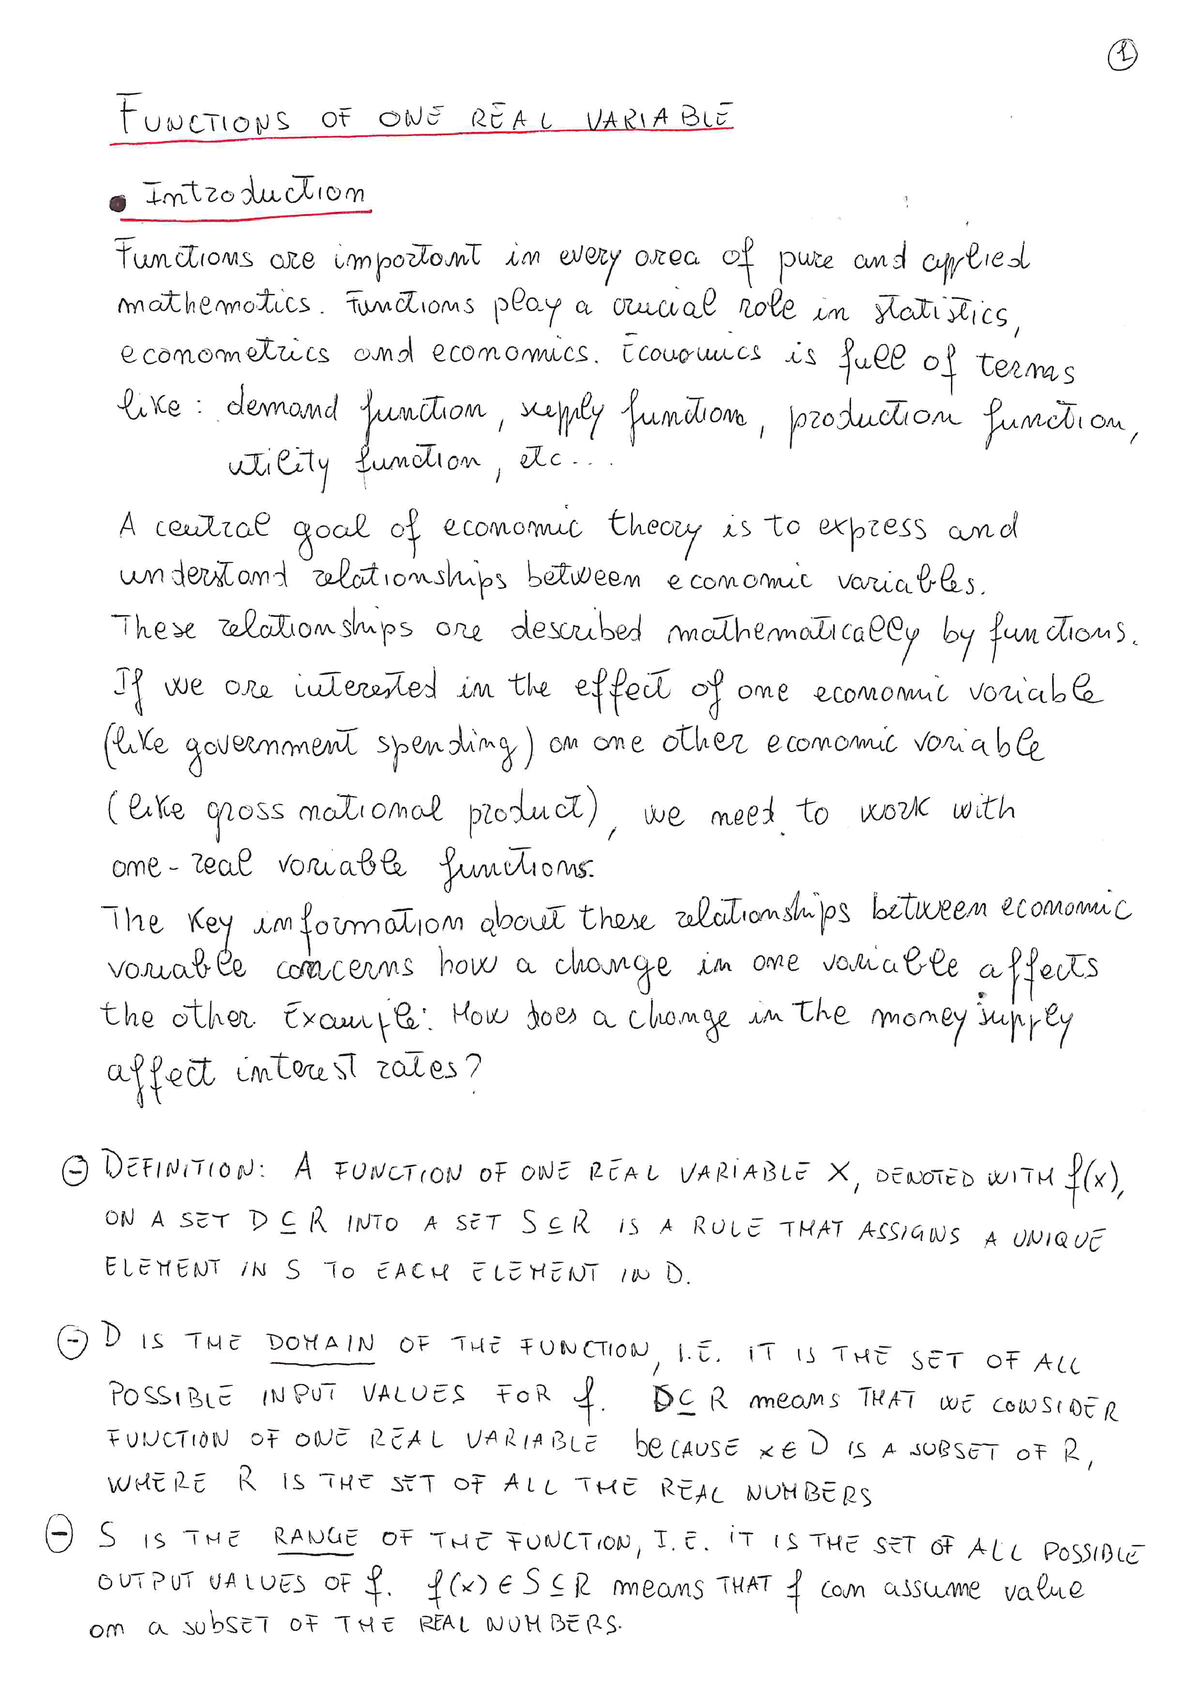 1
FUNCTIONS OF ONE REAL VARIABLE
• Introduction
Functions are important in every area of pure and applied
mathematics. Functions play a crucial role in statistics,
econometrics and economics. Economics is full of terms
like: demand function, supply function, production function,
utility function, etc...
A central goal of economic theory is to express and
understand relationships between economic variables.
These relationships are described mathematically by functions.
If we are interested in the effect of one economic variable
(like government spending) on one other economic variable
(like gross national product), we need to work with
one-real variable functions.
The key information about these relationships between economic
variable concerns how a change in one variable affects
the other. Example: How does a change in the money supply
affect interest rates?
⊖ DEFINITION: A FUNCTION OF ONE REAL VARIABLE X, DENOTED WITH f(x),
ON A SET D ⊆ R INTO A SET S ⊆ R IS A RULE THAT ASSIGNS A UNIQUE
ELEMENT IN S TO EACH ELEMENT IN D.
⊖ D IS THE DOMAIN OF THE FUNCTION, I.E. IT IS THE SET OF ALL
POSSIBLE INPUT VALUES FOR f. D ⊆ R means THAT WE CONSIDER
FUNCTION OF ONE REAL VARIABLE beCAUSE x ∈ D IS A SUBSET OF R,
WHERE R IS THE SET OF ALL THE REAL NUMBERS
⊖ S IS THE RANGE OF THE FUNCTION, I.E. IT IS THE SET OF ALL POSSIBLE
OUTPUT VALUES OF f. f(x) ∈ S ⊆ R means THAT f can assume value
on a subSET OF THE REAL NUMBERS.